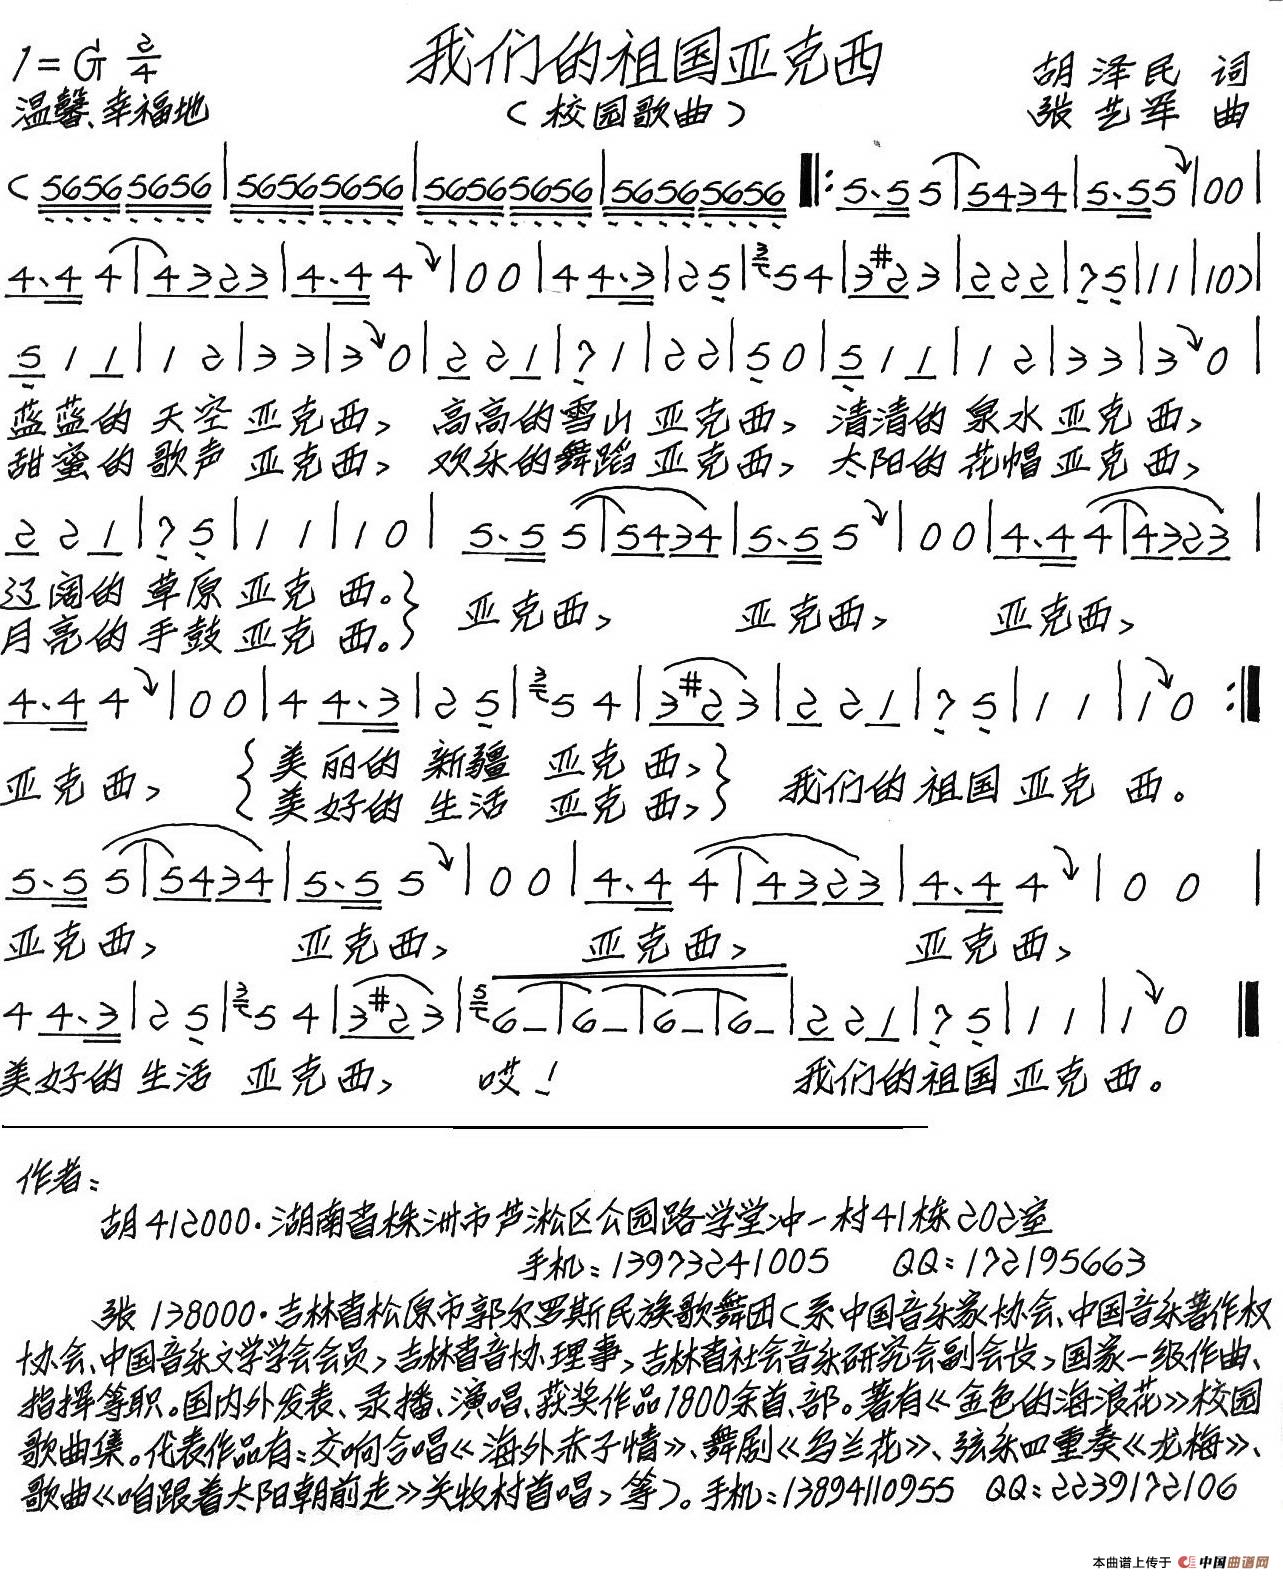 我们的祖国亚克西
1=G 2/4
胡泽民 词
温馨、幸福地
(校园歌曲)
张艺军 曲
(5656 5656|5656 5656|5656 5656|5656 5656‖:5·5 5|5434|5·5 5|00|
4·4 4|4323|4·4 4|00|4 4·3|25|54|3#23|222|75|11|10)|
5 1 1|1 2|33|30|2 2 1|71|22|50|5 1 1|1 2|33|30|
蓝蓝的 天空 亚克西, 高高的雪山 亚克西, 清清的 泉水 亚克 西,
甜蜜的 歌声 亚克西, 欢乐的舞蹈 亚克西, 太阳的 花帽 亚克 西,
2 2 1|75|11|10|5·5 5|5434|5·5 5|00|4·4 4|4323|
辽阔的 草原 亚克 西。 亚克西, 亚克西, 亚克西,
月亮的 手鼓 亚克 西。
4·4 4|00|4 4·3|25|54|3#23|2 2 1|75|11|10:‖
亚克西, 美丽的 新疆 亚克 西, 我们的 祖国 亚克 西。
美好的 生活 亚克 西,
5·5 5|5434|5·5 5|00|4·4 4|4323|4·4 4|00|
亚克西, 亚克西, 亚克西, 亚克西,
4 4·3|25|54|3#23|6-|6-|6-|6-|2 2 1|75|11|10‖
美好的 生活 亚克西, 哎! 我们的祖国 亚克 西。
作者:
胡 412000·湖南省株洲市芦淞区公园路学堂冲一村41栋202室
手机:13973241005 QQ:172195663
张 138000·吉林省松原市郭尔罗斯民族歌舞团(系中国音乐家协会、中国音乐著作权
协会、中国音乐文学学会会员,吉林省音协理事,吉林省社会音乐研究会副会长,国家一级作曲、
指挥等职。国内外发表、录播、演唱、获奖作品1800余首、部。著有《金色的海浪花》校园
歌曲集。代表作品有:交响合唱《海外赤子情》、舞剧《乌兰花》、弦乐四重奏《龙梅》、
歌曲《咱跟着太阳朝前走》关牧村首唱,等)。手机:13894110955 QQ:2239172106
本曲谱上传于 中国曲谱网